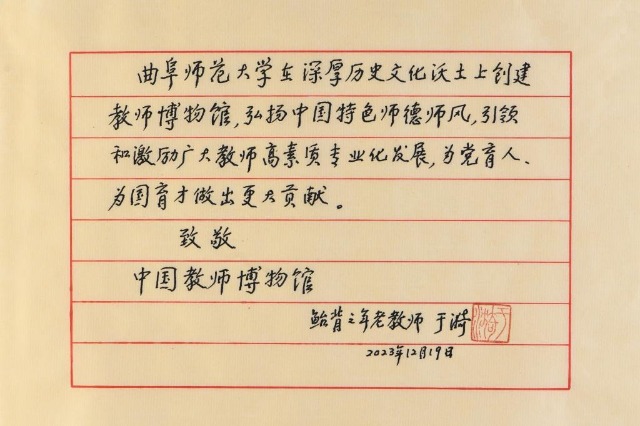 曲阜师范大学在深厚历史文化沃土上创建
教师博物馆，弘扬中国特色师德师风，引领
和激励广大教师高素质专业化发展，为党育人、
为国育才做出更大贡献。
致敬
中国教师博物馆
鲐背之年老教师 于漪
2023年12月19日